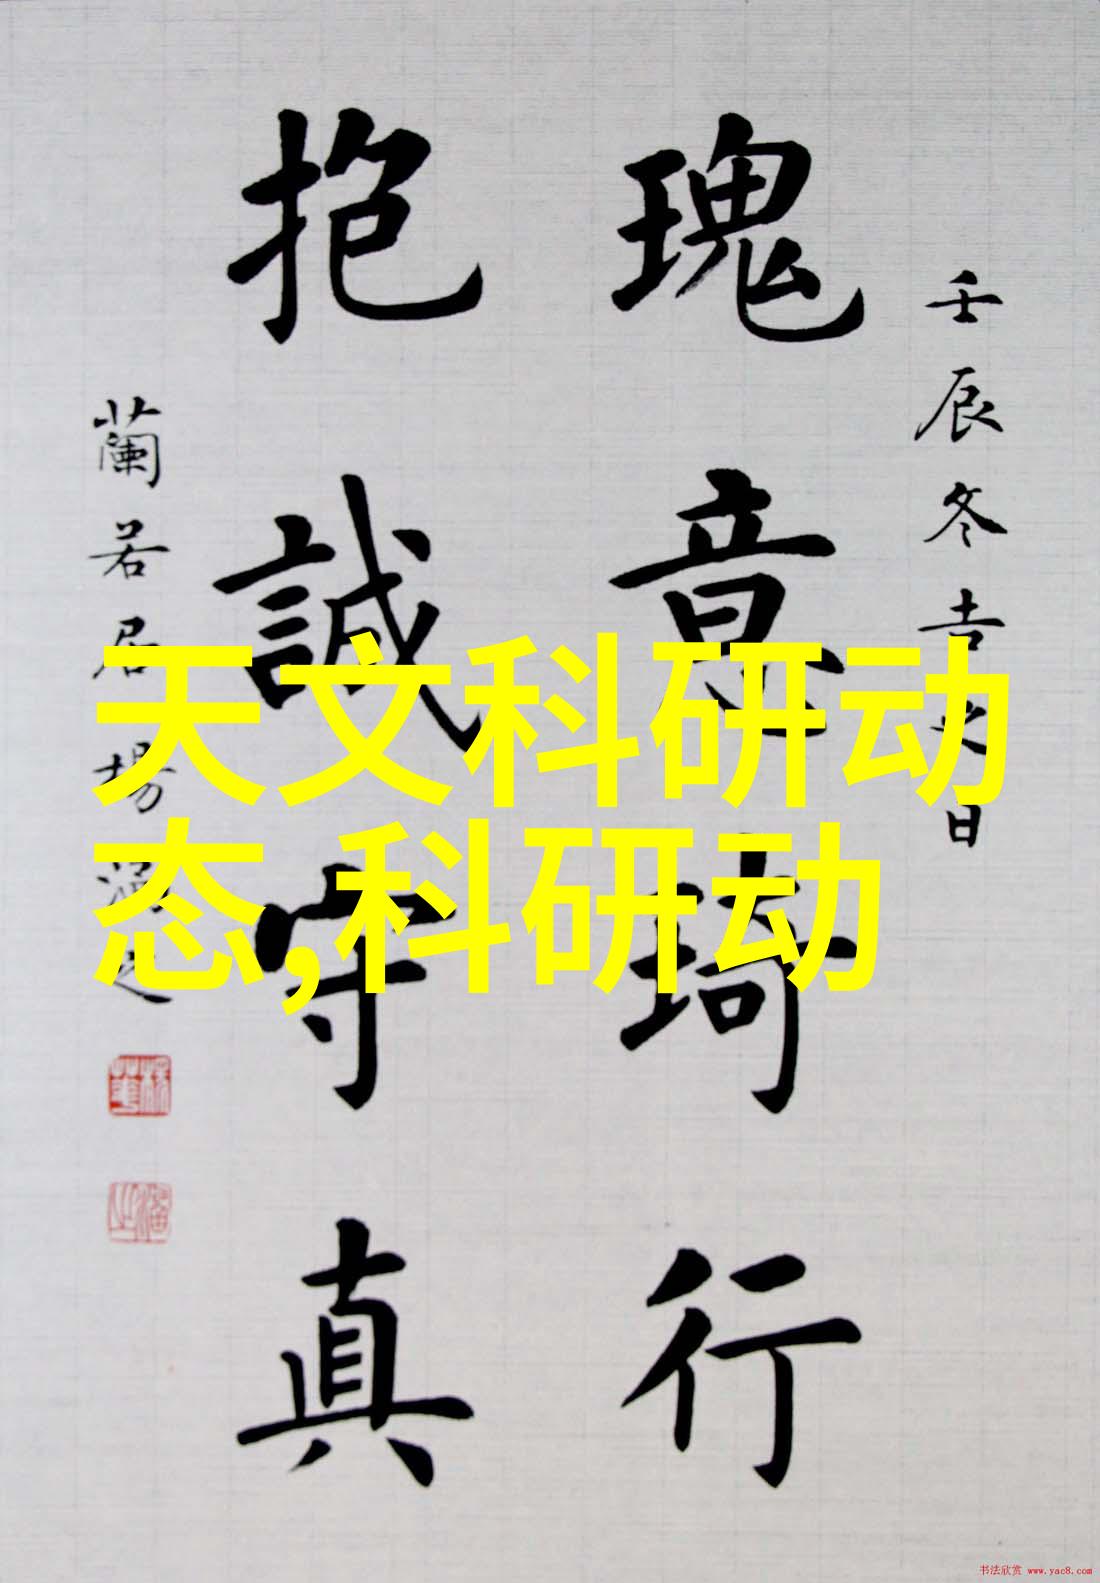 壬辰冬吉之日
瑰意琦行
抱誠守真
蘭若居楊
天文科研动
态,科研动
书法欣赏 www.yac8.com